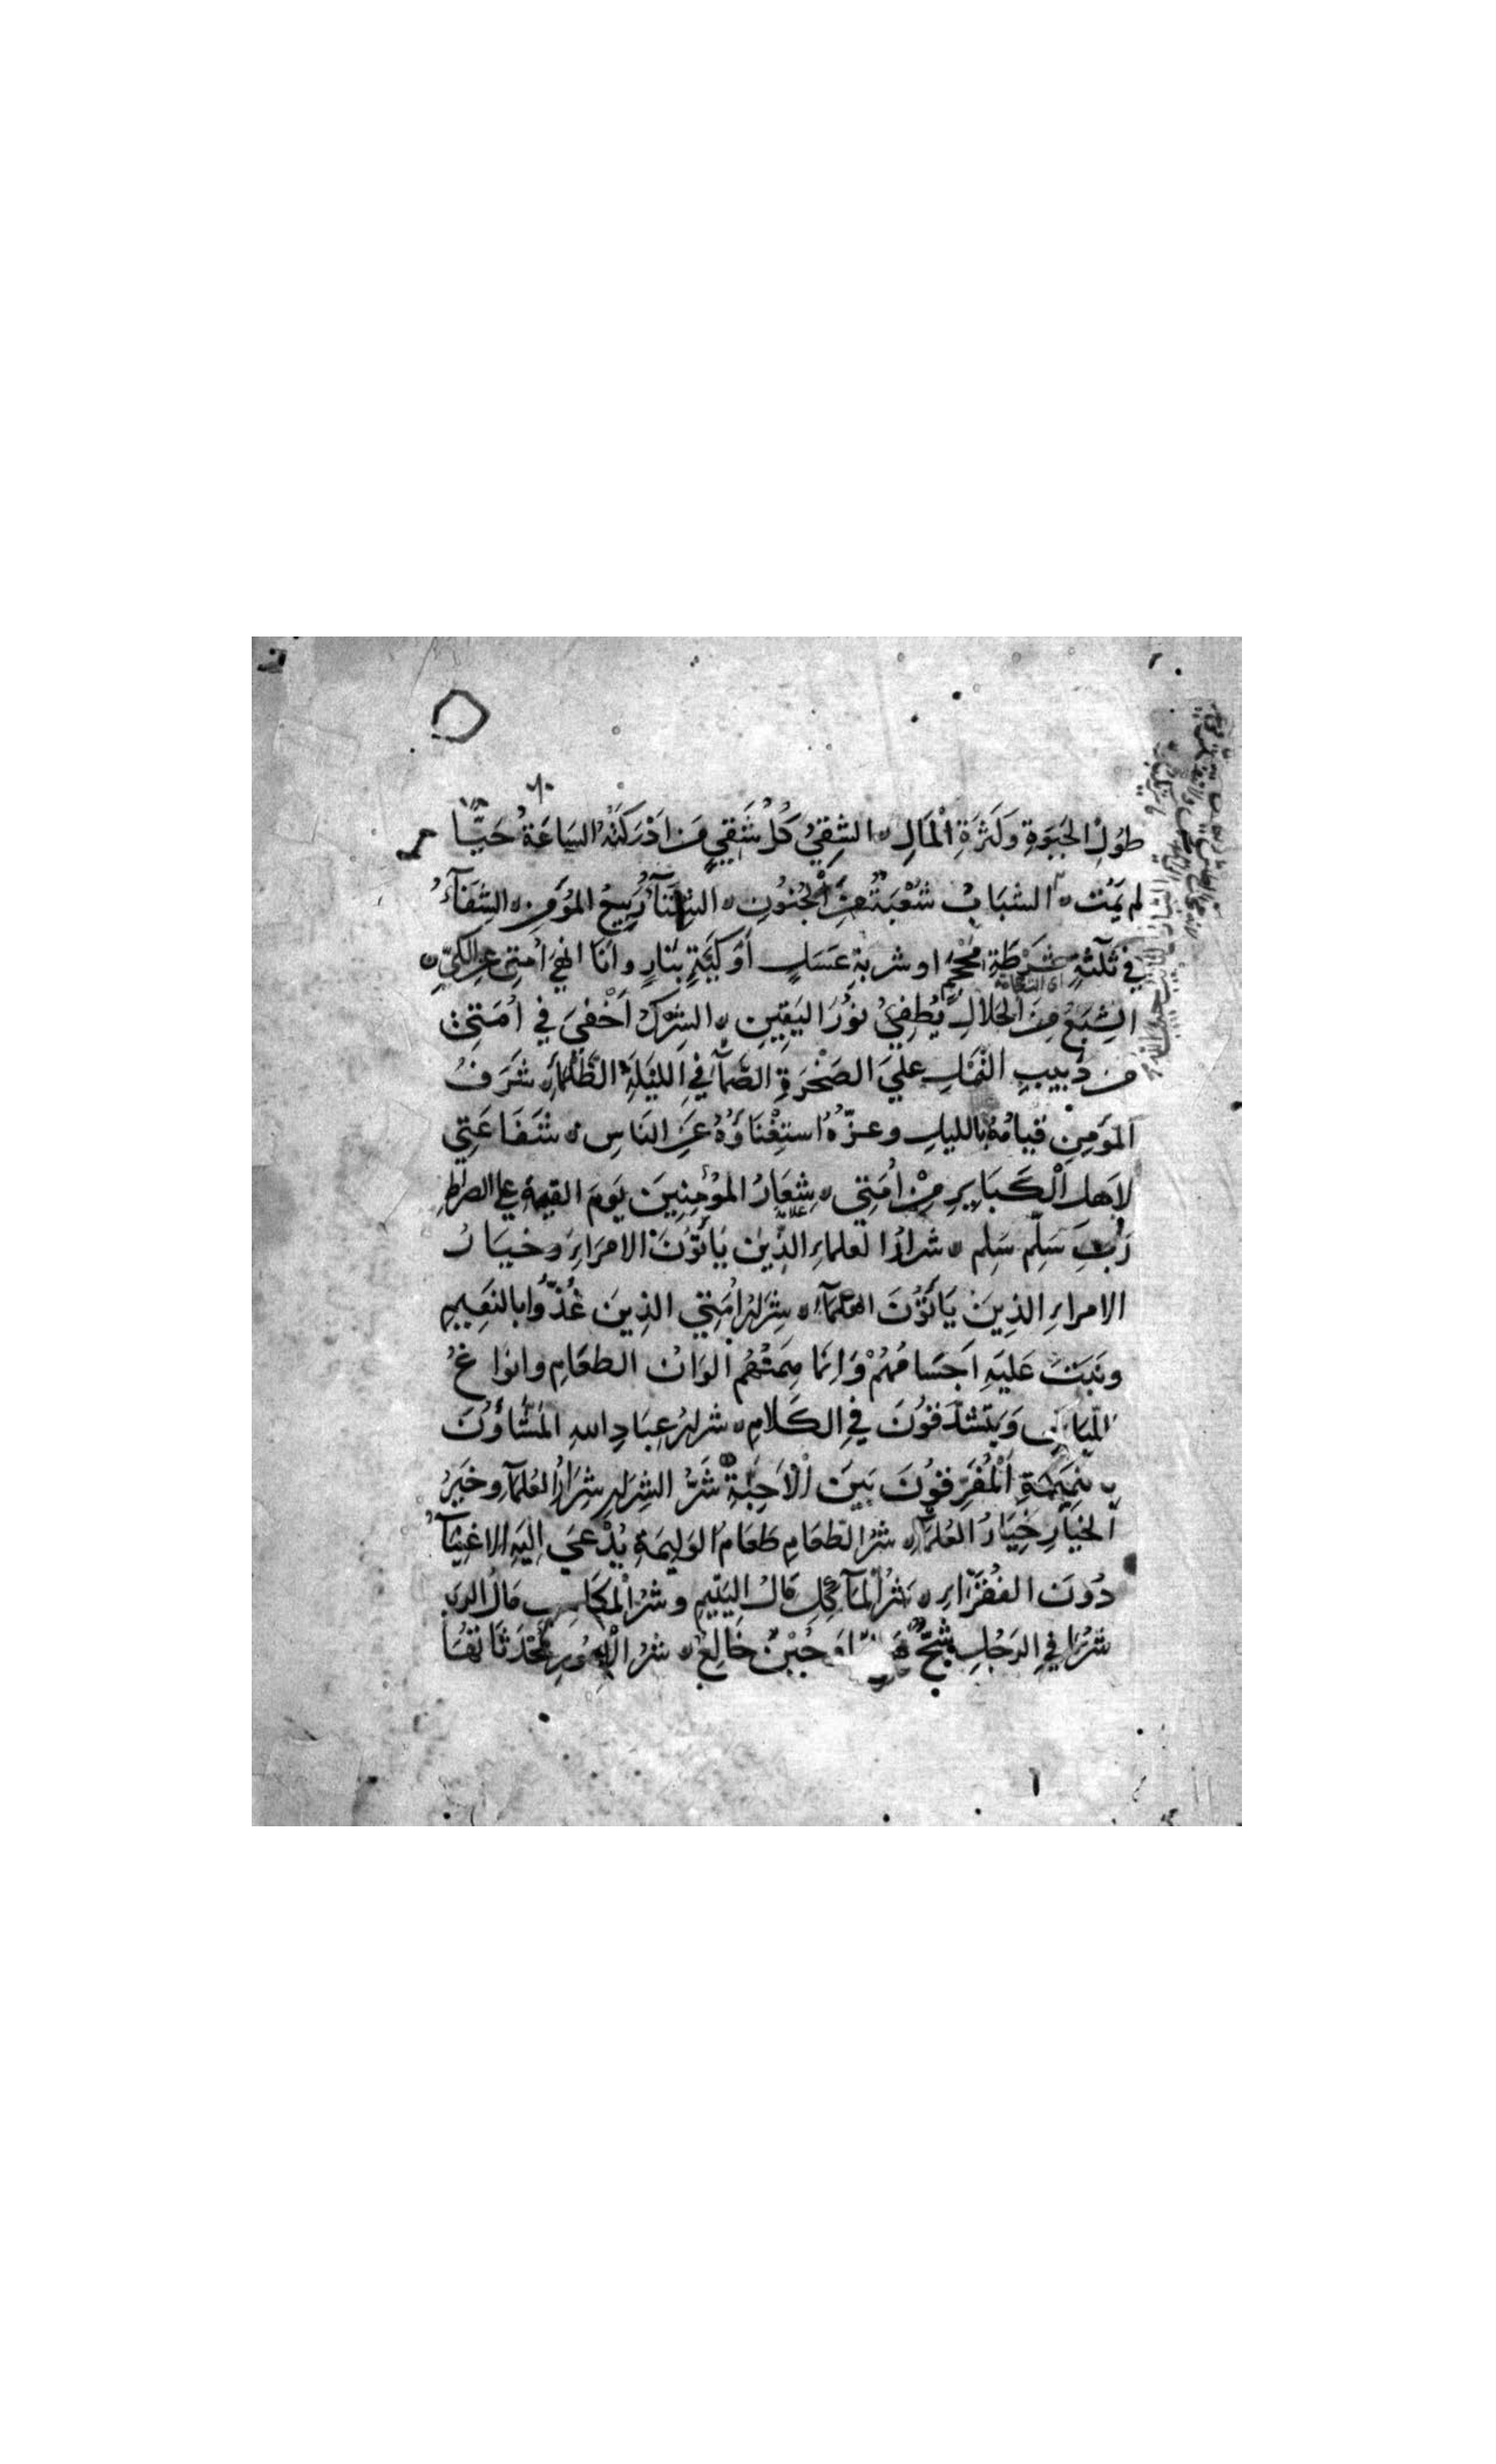 طُولِ الحَيٰوةِ وَكَثْرَةِ الْمَالِ ۞ الشَقِيُّ كُلُّ شَقِيٍّ مَن اَدْرَكَتْهُ السَاعَةُ حَيًّا
لم يَمُت ۞ الشَبَابُ شُعْبَةٌ مِنَ الْجُنُونِ ۞ الشِتَآءُ رَبِيعُ المؤمِنِ ۞ الشِفَآءُ
في ثَلٰثةٍ شَرْطَةِ مِحْجَمٍ او شربةِ عَسَلٍ أوْ كَيَّةٍ بِنَارٍ وانَا انْهَى اُمَتي عن الكيّ ۞
الشِبَعُ مِنَ الحَلَالِ يُطْفِيُ نُوْرَ اليَقِينِ ۞ الشِركُ اَخْفىَ في اُمَتيِ
من دَبيبِ النَّمْلِ عَلىَ الصَخْرَةِ الصَّمآءِ في اللَيْلَةِ الظَّلْمآءِ ۞ شَرَفُ
المؤمِنِ قيامُهُ بالليلِ وعزّهُ استِغْنَاؤُهُ عَنِ النَاسِ ۞ شَفَاعَتِي
لاَهلِ الْكَبَايِرِ مِنْ اُمَتِي ۞ شِعَارُ المؤمِنِينَ يَومَ القيمةِ على الصراطِ
رَبِّ سَلِّم سَلِم ۞ شرارُ العلماءِ الذِينَ يَأتُوْنَ الامَرَاءِ وخيَارُ
الامراءِ الذِينَ يَاتُوْنَ العُلَمَآءَ ۞ شِرَارُ اُمَتِي الذِينَ غُذُّوا بالنَعِيمِ
ونَبَتَتْ عَلَيهِ اَجسَامُهُمْ وَاِنَمَا هِمَتُهُم اَلوَانُ الطعَامِ وانوَاعُ
الثِّيَابِ وَيَتَشَدَّقوُنَ في الكَلَامِ ۞ شرارُ عِبَادِ اللهِ المَشَّاؤُنَ
بِنَمِيمَةِ اَلْمُفَرِّقوُنَ بَينَ الْاَحِبّةِ ۞ شَرُّ الشِرَارِ شِرَارُ العُلمآءِ وخَيَرُ
اَلخيَارِ خِيَارُ العُلمآءِ ۞ شرُ الطعَامِ طَعَامُ الوَلِيمَةِ يُدْعَي اِليَهِ الاغنِيَآءُ
دُونَ الفُقَرَآءِ ۞ شرُّ المآكِلِ مَالُ اليَتِيمِ وشرُ المكَاسِبِ مَالُ الربا
شرُّ مَا فِي الرَجُلِ شُحٌّ او جُبْنٌ خَالِعٌ ۞ شرُ الْاُمُورِ مُحْدَثَاتهَا